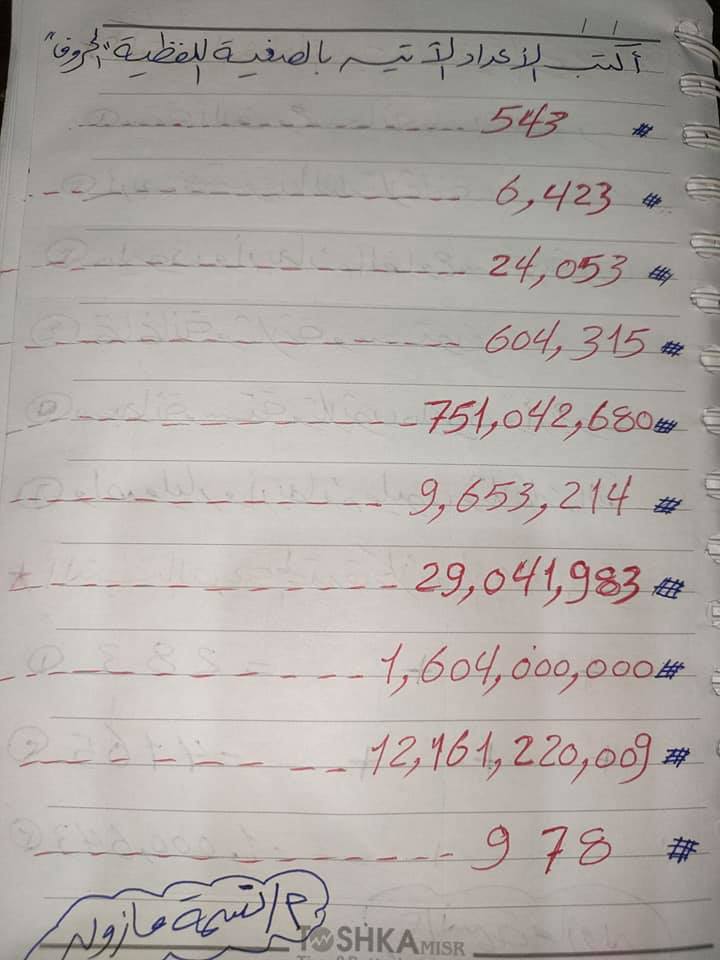 أكتب الأعداد الآتيه بالصغية اللفظية "الحروف"
# 543
# 6,423
# 24,053
# 604,315
# 751,042,680
# 9,653,214
# 29,041,983
# 1,604,000,000
# 12,161,220,009
# 978
TOSHKA MISR